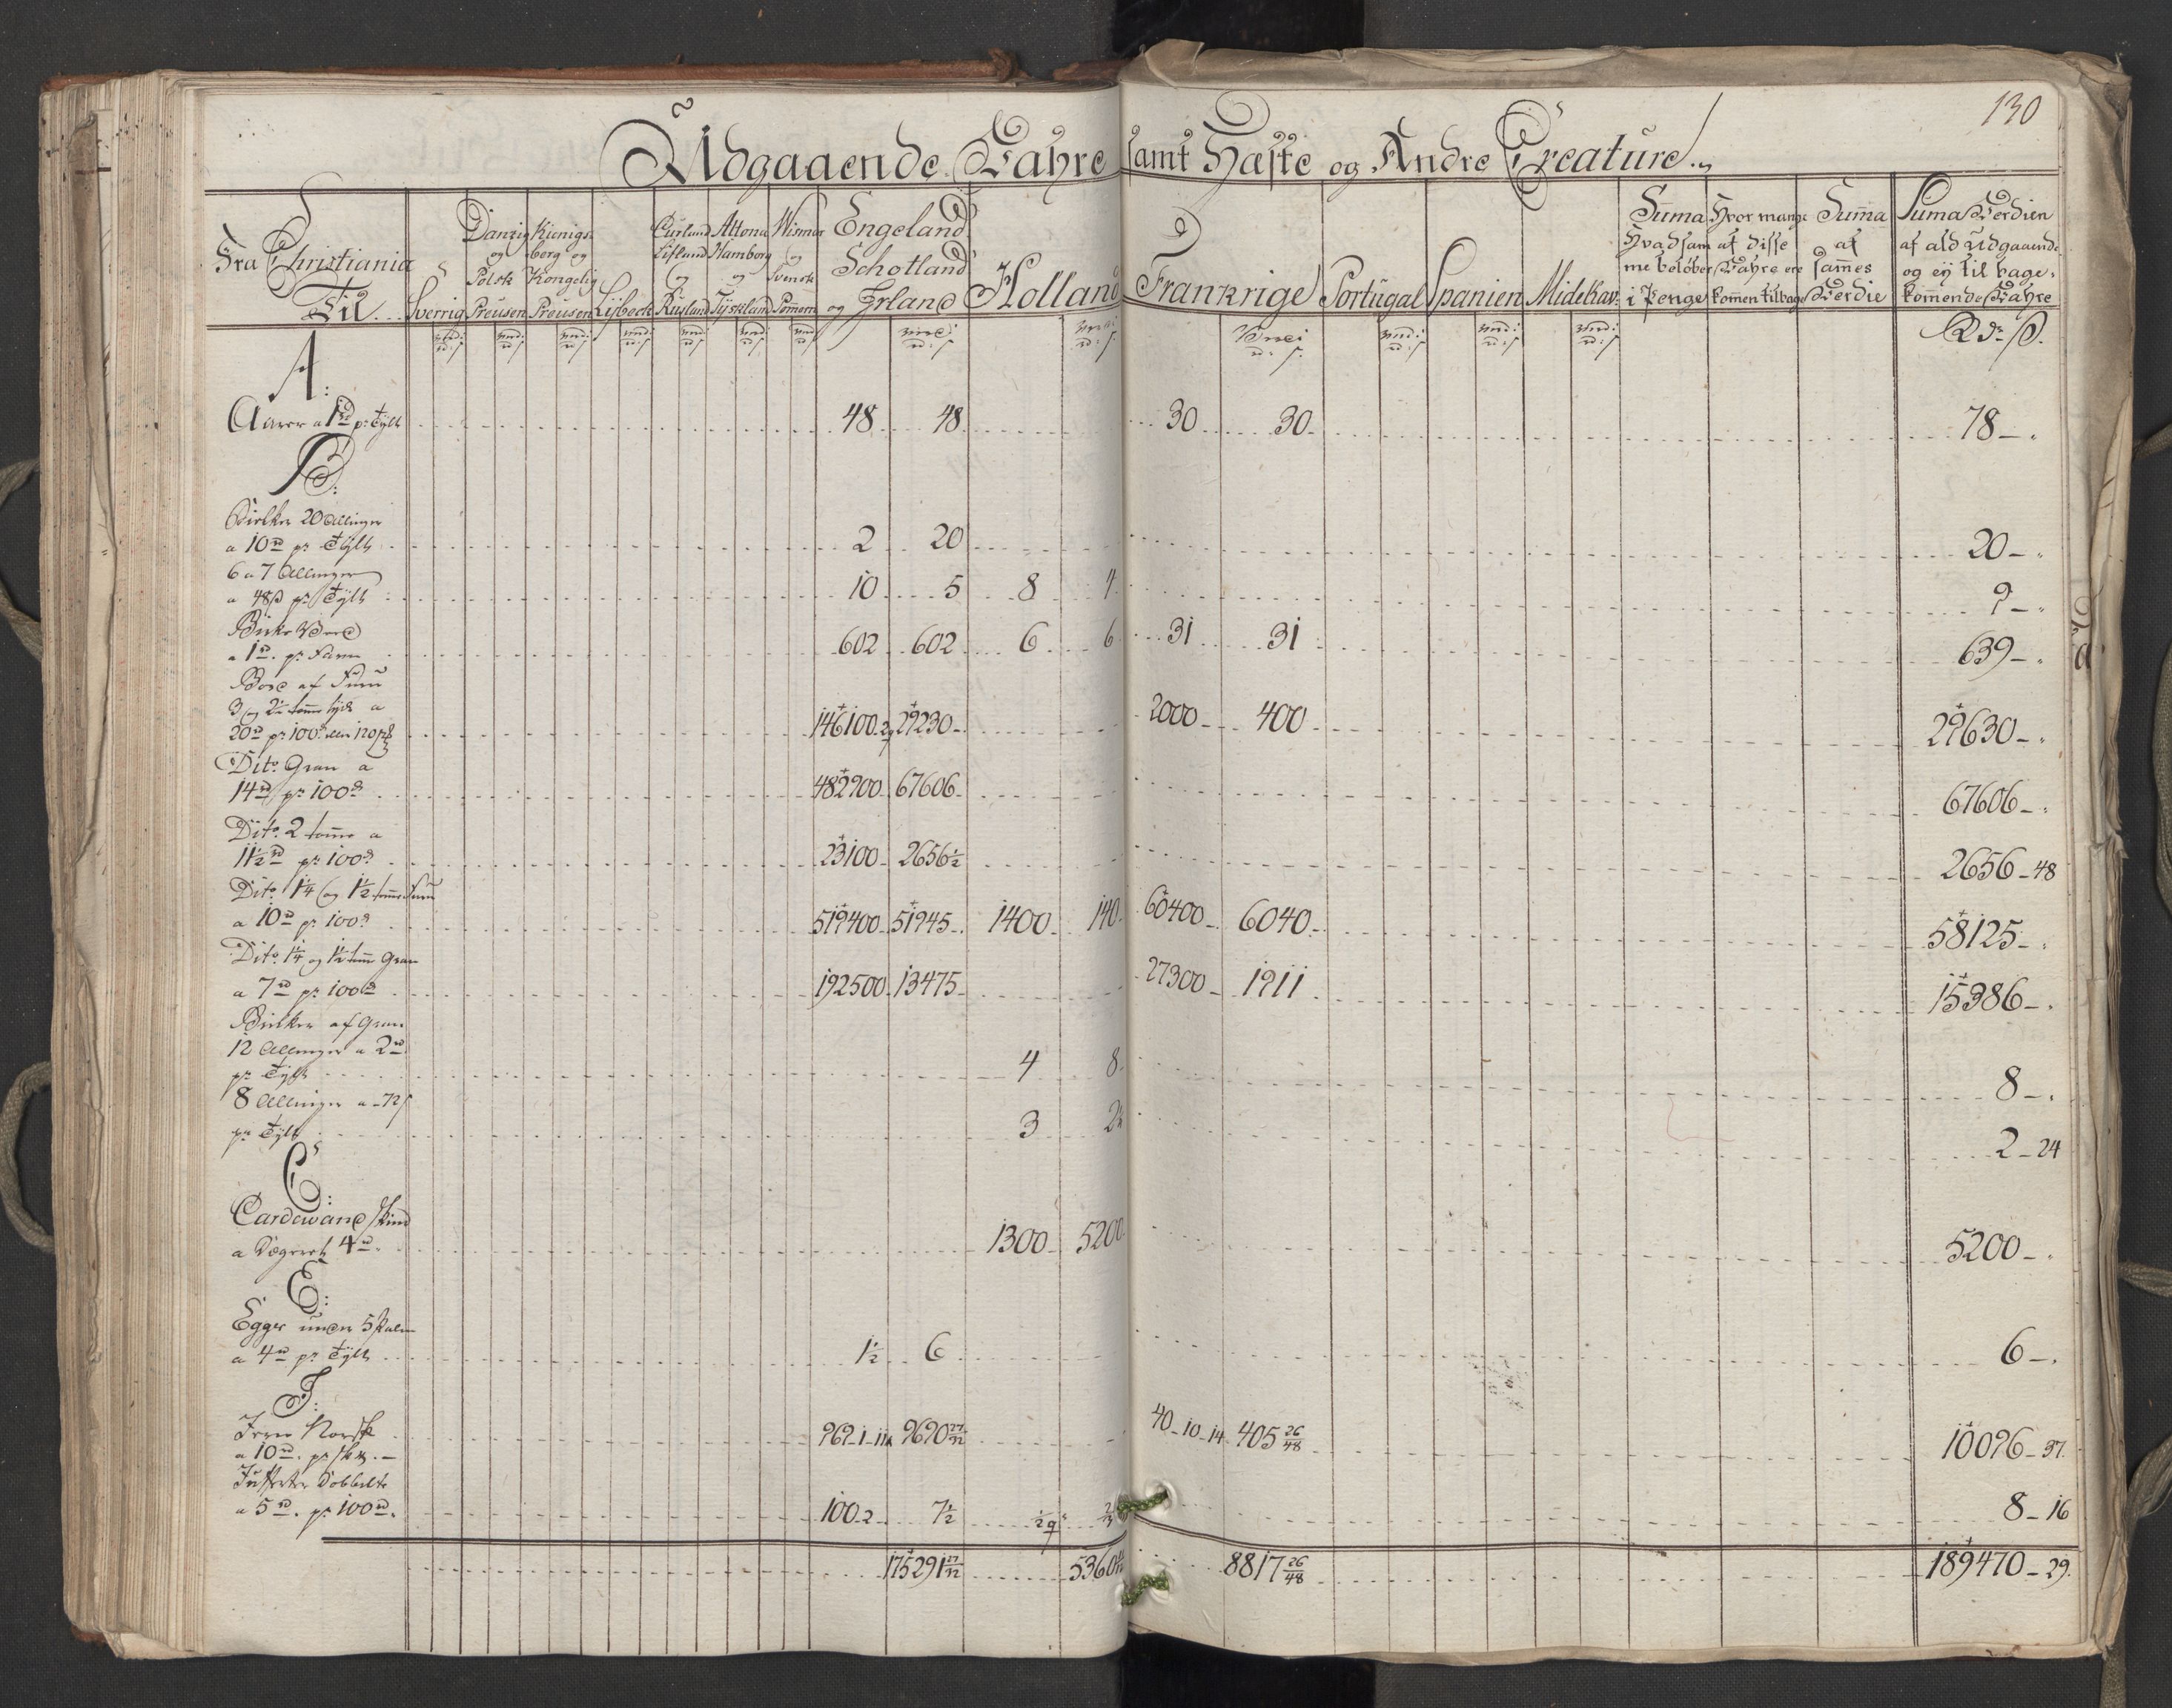 130
Udgaaende Vahre samt Hæste og Andre Creature
Fra Christiania Til
Sverrig
Danzig og Polsk Preusen
Kienigsberg og Kongelig Preusen
Lÿbeck
Curland Lifland og Rusland
Altona Hamborg og Tÿskland
Wismar og Svensk Pomern
Engeland Schotland og Irland
Holland
Frankrige
Portugal
Spanien
Midelhav:
Suma Hvadsamme beløber i Penge
Hvor mange af disse Vahre ere kommen tilbage
Suma af sammes Verdie
Suma Verdien af ald Udgaaende og eÿ tilbagekommende Vahre
Rdr ß.
A:
Aarer a 1rd pr Tÿlt 48 48 30 30 78 –
B:
Bielker 20 Allinger
a 10rd pr Tÿlt 2 20 20 –
6 a 7 Allinger
a 48ß pr Tÿlt 10 5 8 4 9 –
Birke Ved
a 1rd pr Favn 602 602 6 6 31 31 639 –
Bord af Furu
3 og 2½ tomme tÿk a
20rd pr 100d 146100 29230 – 2000 – 400 29630 –
Dito Gran a
14rd pr 100d 482900 67606 67606 –
Dito 2 tomme a
11½rd pr 100d 23100 2656½ 2656 – 48
Dito 1¼ og 1½ tomme Furu
a 10rd pr 100d 519400 51945 1400 140 60400 6040 58125 –
Dito 1¼ og 1½ tomme Gran
a 7rd pr 100d 192500 13475 27300 1911 15386 –
Bielker af Gran
12 Allinger a 2rd
pr Tÿlt 4 8 8 –
8 Allinger a 72ß
pr Tÿlt 3 2 2 – 24
C:
Cardewane Skind
a Degeret 4rd 1300 5200 5200 –
E:
Egger under 5 Palm
a 4rd pr Tÿlt 1½ 6 6 –
J:
Jern Norsk
a 10rd pr 969 – 1 – 11 9690 40 – 10 – 14 405 26/48 10096 – 37
Jufferter Dobbelte
a 5rd pr 100d 100 – 2 7½ 8 – 16
175291 5360 8817 26/48 189470 – 29